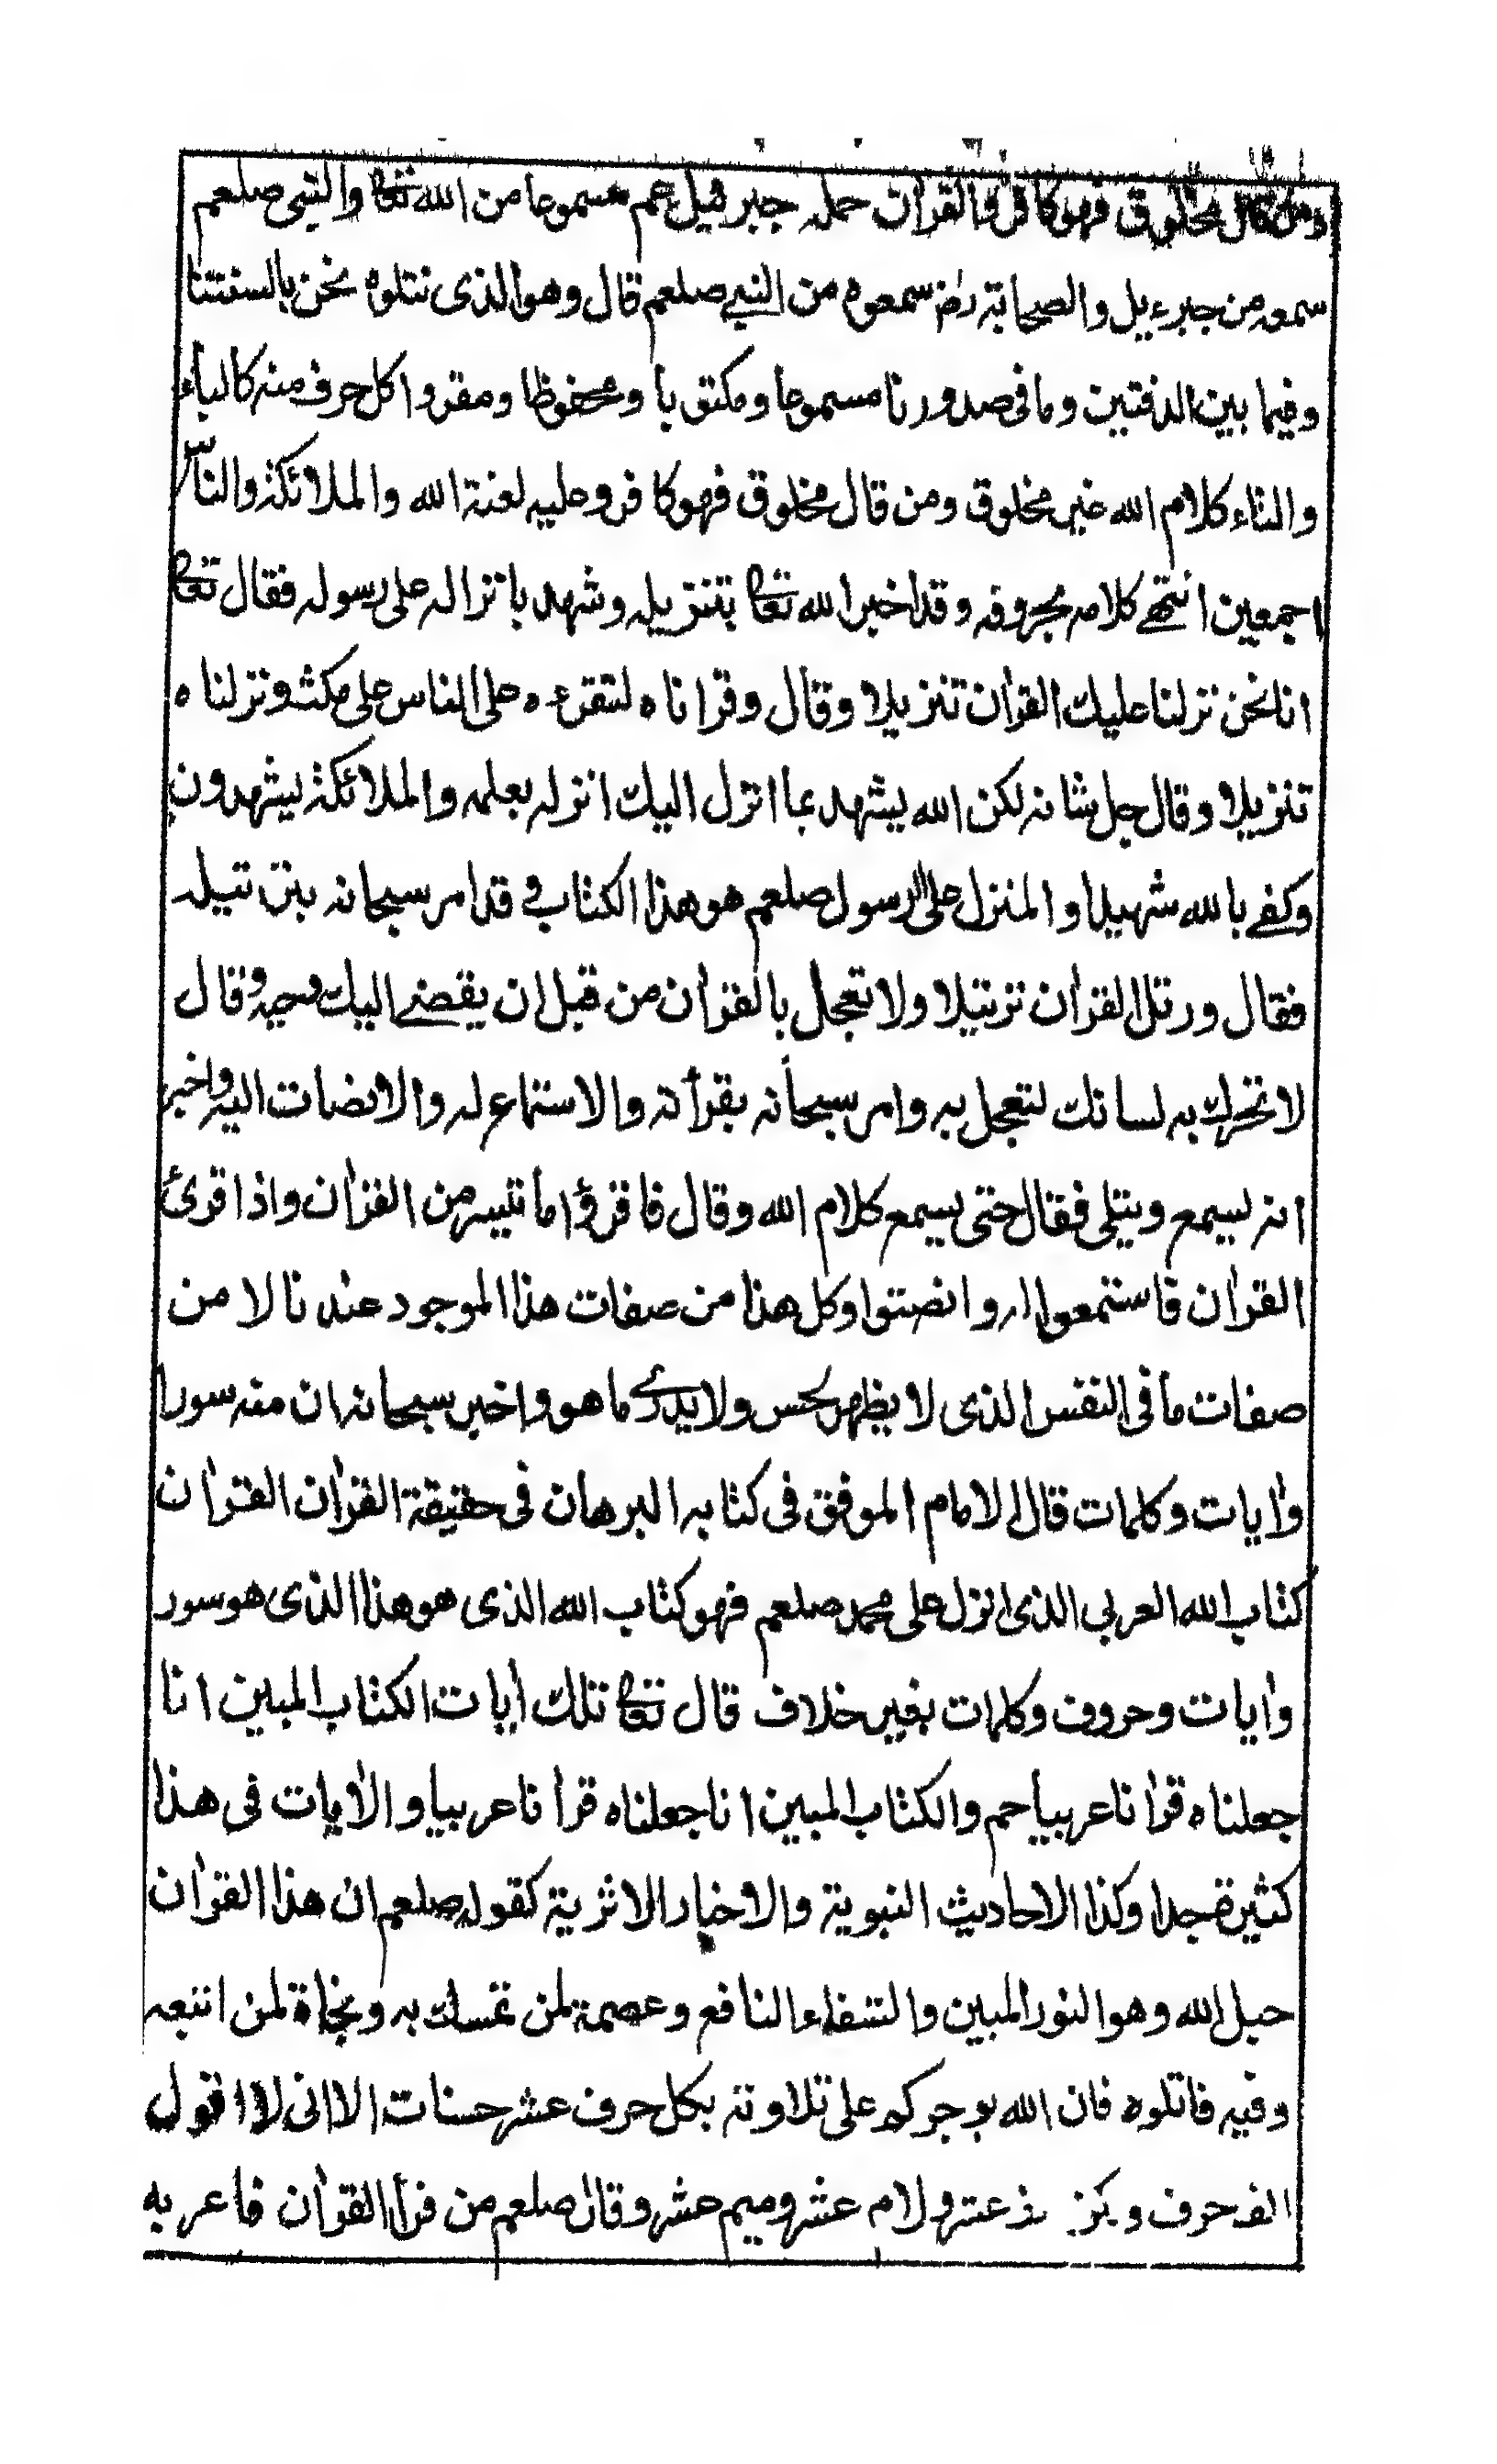 ومن قال مخلوق فهو كافر والقران حمله جبرئيل عم مسموعا من الله تعا والنبي صلعم
سمعه من جبرءيل والصحابة رض سمعوه من النبي صلعم قال وهو الذى نتلوه نحن بالسنتنا
وفيما بين الدفتين وما فى صدورنا مسموعا ومكتوبا ومحفوظا ومقروا كل حرف منه كالباء
والتاء كلام الله غير مخلوق ومن قال مخلوق فهو كافر وعليه لعنة الله والملائكة والناس
اجمعين انتهى كلامه بحروفه وقد اخبر الله تعا بتنزيله وشهد بانزاله على رسوله فقال تعا
انا نحن نزلنا عليك القران تنزيلا وقال وقرانا ه لتقرءه على الناس على مكث ونزلناه
تنزيلا وقال جل شانه لكن الله يشهد بما انزل اليك انزله بعلمه والملائكة يشهدون
وكفى بالله شهيدا والمنزل على الرسول صلعم هو هذا الكتاب وقد امر سبحانه بترتيله
فقال ورتل القران ترتيلا ولا تعجل بالقران من قبل ان يقضى اليك وحيه وقال
لا تحرك به لسانك لتعجل به وامر سبحانه بقرأته والاستماع له والانصات اليه واخبر
انه يسمع ويتلى فقال حتى يسمع كلام الله وقال فاقرؤا ما تيسر من القران واذا قرئ
القران فاستمعوا له وانصتوا وكل هذا من صفات هذا الموجود عندنا لا من
صفات ما فى النفس الذى لا يظهر لحس ولا يدرى ما هو واخبر سبحانه ان منه سورا
وايات وكلمات قال الامام الموفق فى كتابه البرهان فى حقيقة القران القران
كتاب الله العربى الذى انزل على محمد صلعم فهو كتاب الله الذى هو هذا الذى هو سور
وايات وحروف وكلمات بغير خلاف قال تعا تلك ايات الكتاب المبين انا
جعلناه قرانا عربيا حم والكتاب المبين انا جعلناه قرانا عربيا والايات فى هذا
كثيرة جدا وكذا الاحاديث النبوية والاخبار الاثرية كقوله صلعم ان هذا القران
حبل الله وهو النور المبين والشفاء النافع وعصمة لمن تمسك به ونجاة لمن اتبعه
وفيه فاتلوه فان الله يوجركم على تلاوته بكل حرف عشر حسنات الا انى لا اقول
الف حرف و ولام عشر وميم عشر وقال صلعم من قرأ القران فاعربه